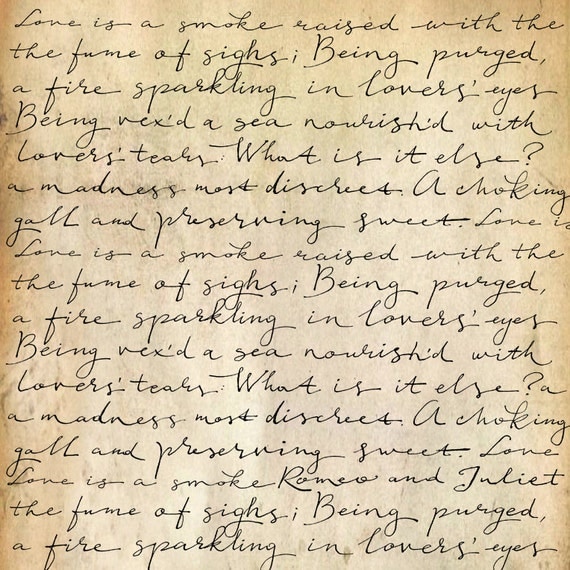 Love is a smoke raised with the
the fume of sighs; Being purged,
a fire sparkling in lovers' eyes
Being vex'd a sea nourish'd with
lovers' tears: What is it else?
a madness most discreet. A choking
gall and preserving sweet. Love is
Love is a smoke raised with the
the fume of sighs; Being purged,
a fire sparkling in lovers' eyes
Being vex'd a sea nourish'd with
lovers' tears: What is it else? a
a madness most discreet. A choking
gall and preserving sweet. Love
Love is a smoke Romeo and Juliet
the fume of sighs; Being purged,
a fire sparkling in lovers' eyes